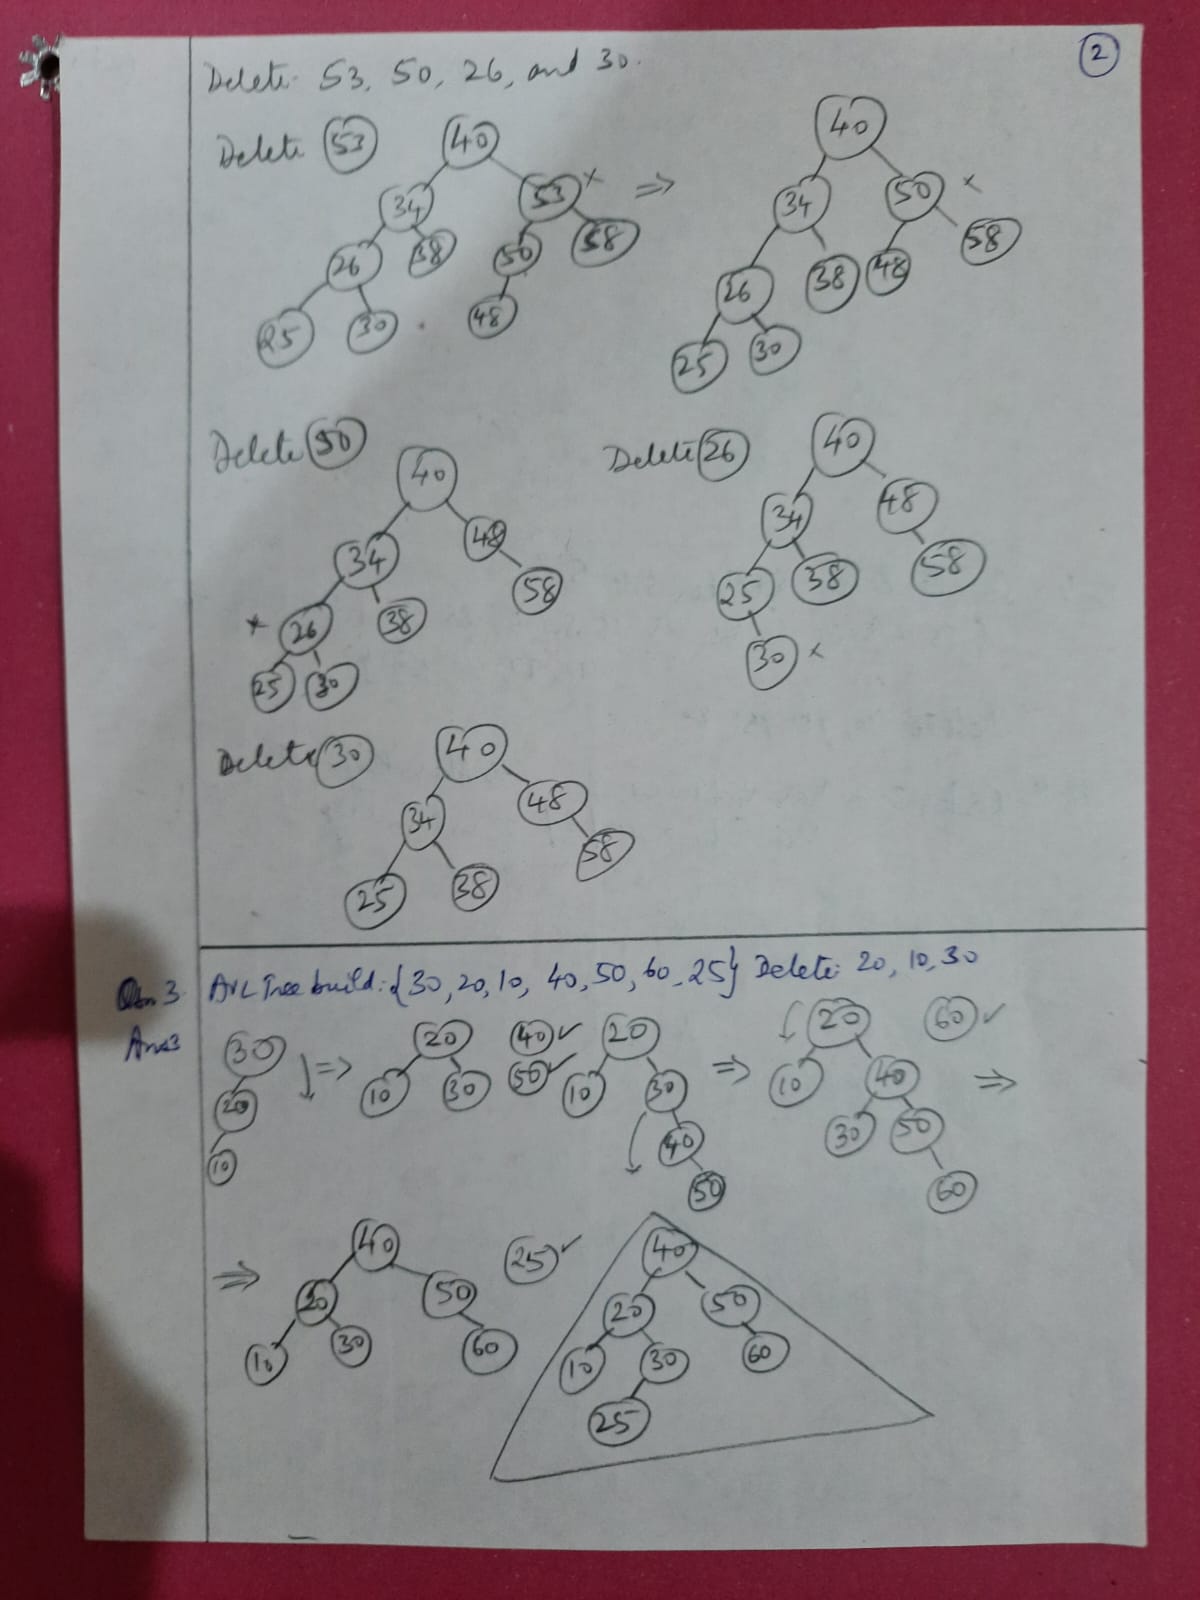 2
Delete: 53, 50, 26, and 30.
Delete 53
40
34 53 x
26 38 50 58
25 30 48
⇒
40
34 50 x
26 38 48 58
25 30
Delete 50
40
34 48
x 26 38 58
25 30
Delete 26
40
34 48
25 38 58
30 x
Delete 30
40
34 48
25 38 58
Qsn 3. AVL Tree build: {30, 20, 10, 40, 50, 60, 25} Delete: 20, 10, 30
Ans3
30
20
10
⇒
20
10 30
40 ✓
50 ✓
20
10 30
40
50
⇒
20
10 40
30 50
60
60 ✓
⇒
⇒
40
20 50
10 30 60
25 ✓
40
20 50
10 30 60
25